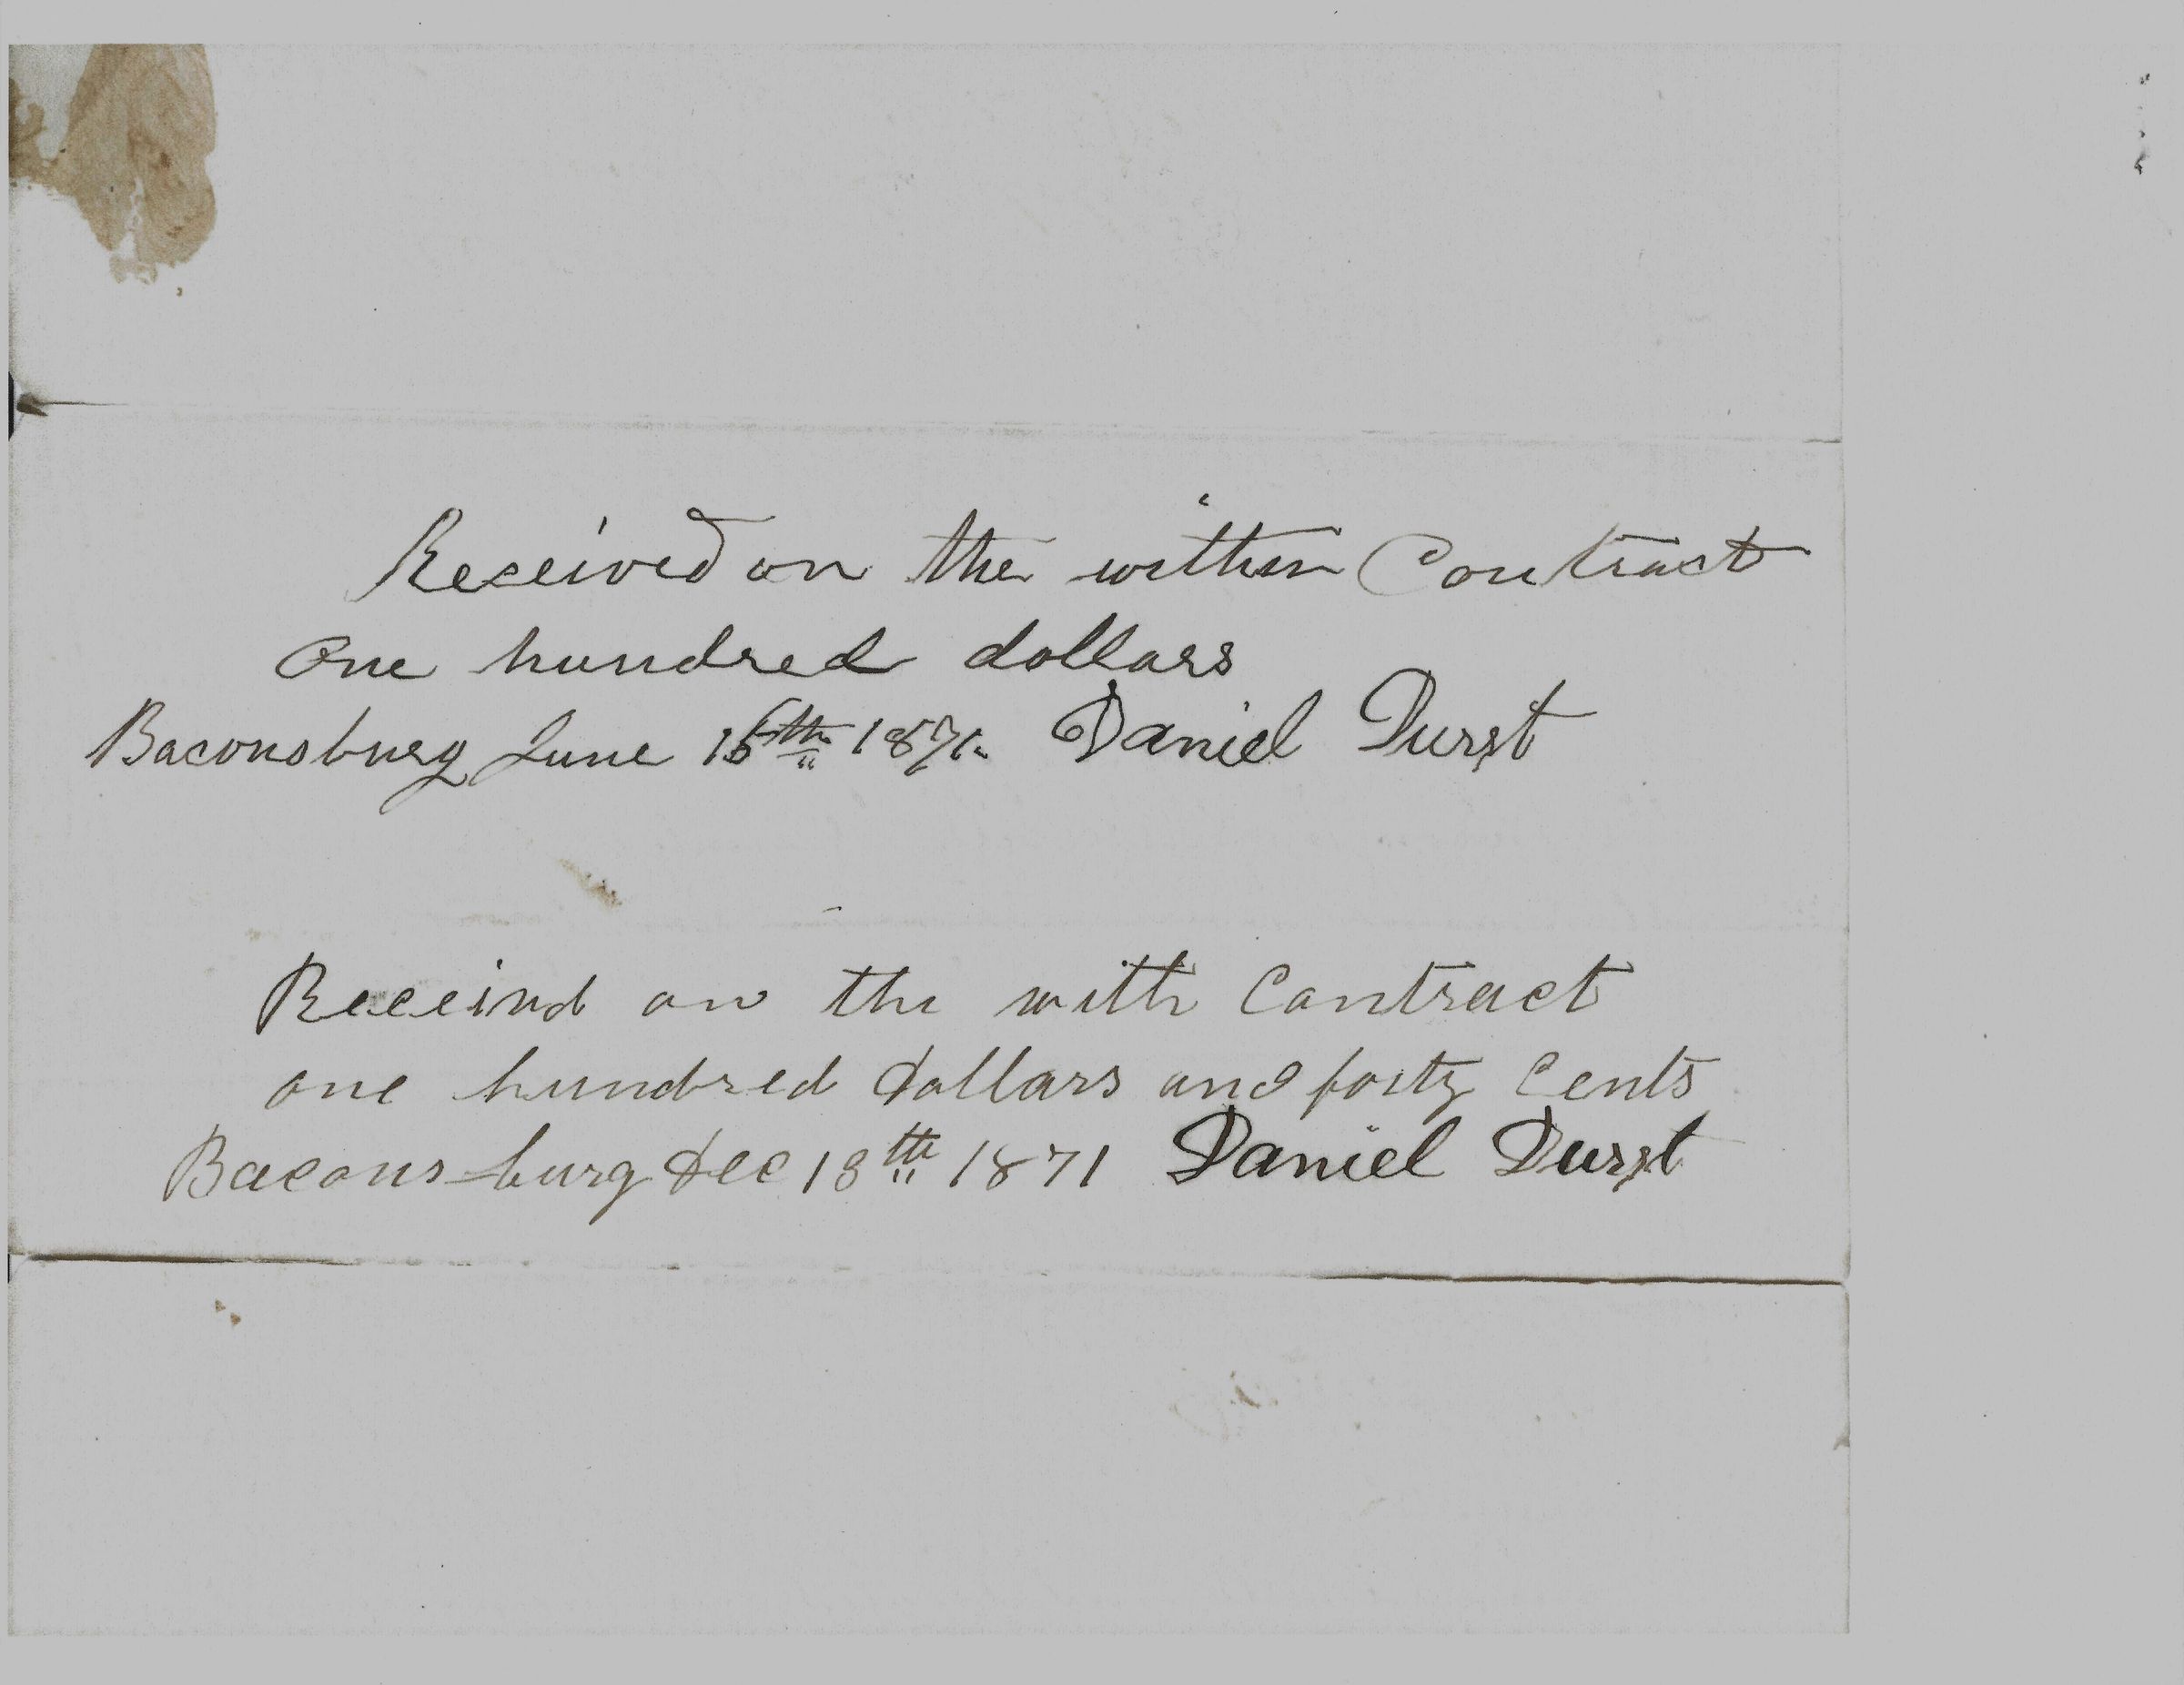 Received on the within Contract
One hundred dollars
Baconsburg June 15th 1871. Daniel Durst
Received on the with Contract
one hundred dollars and forty Cents
Bacons-burg Dec 18th 1871 Daniel Durst